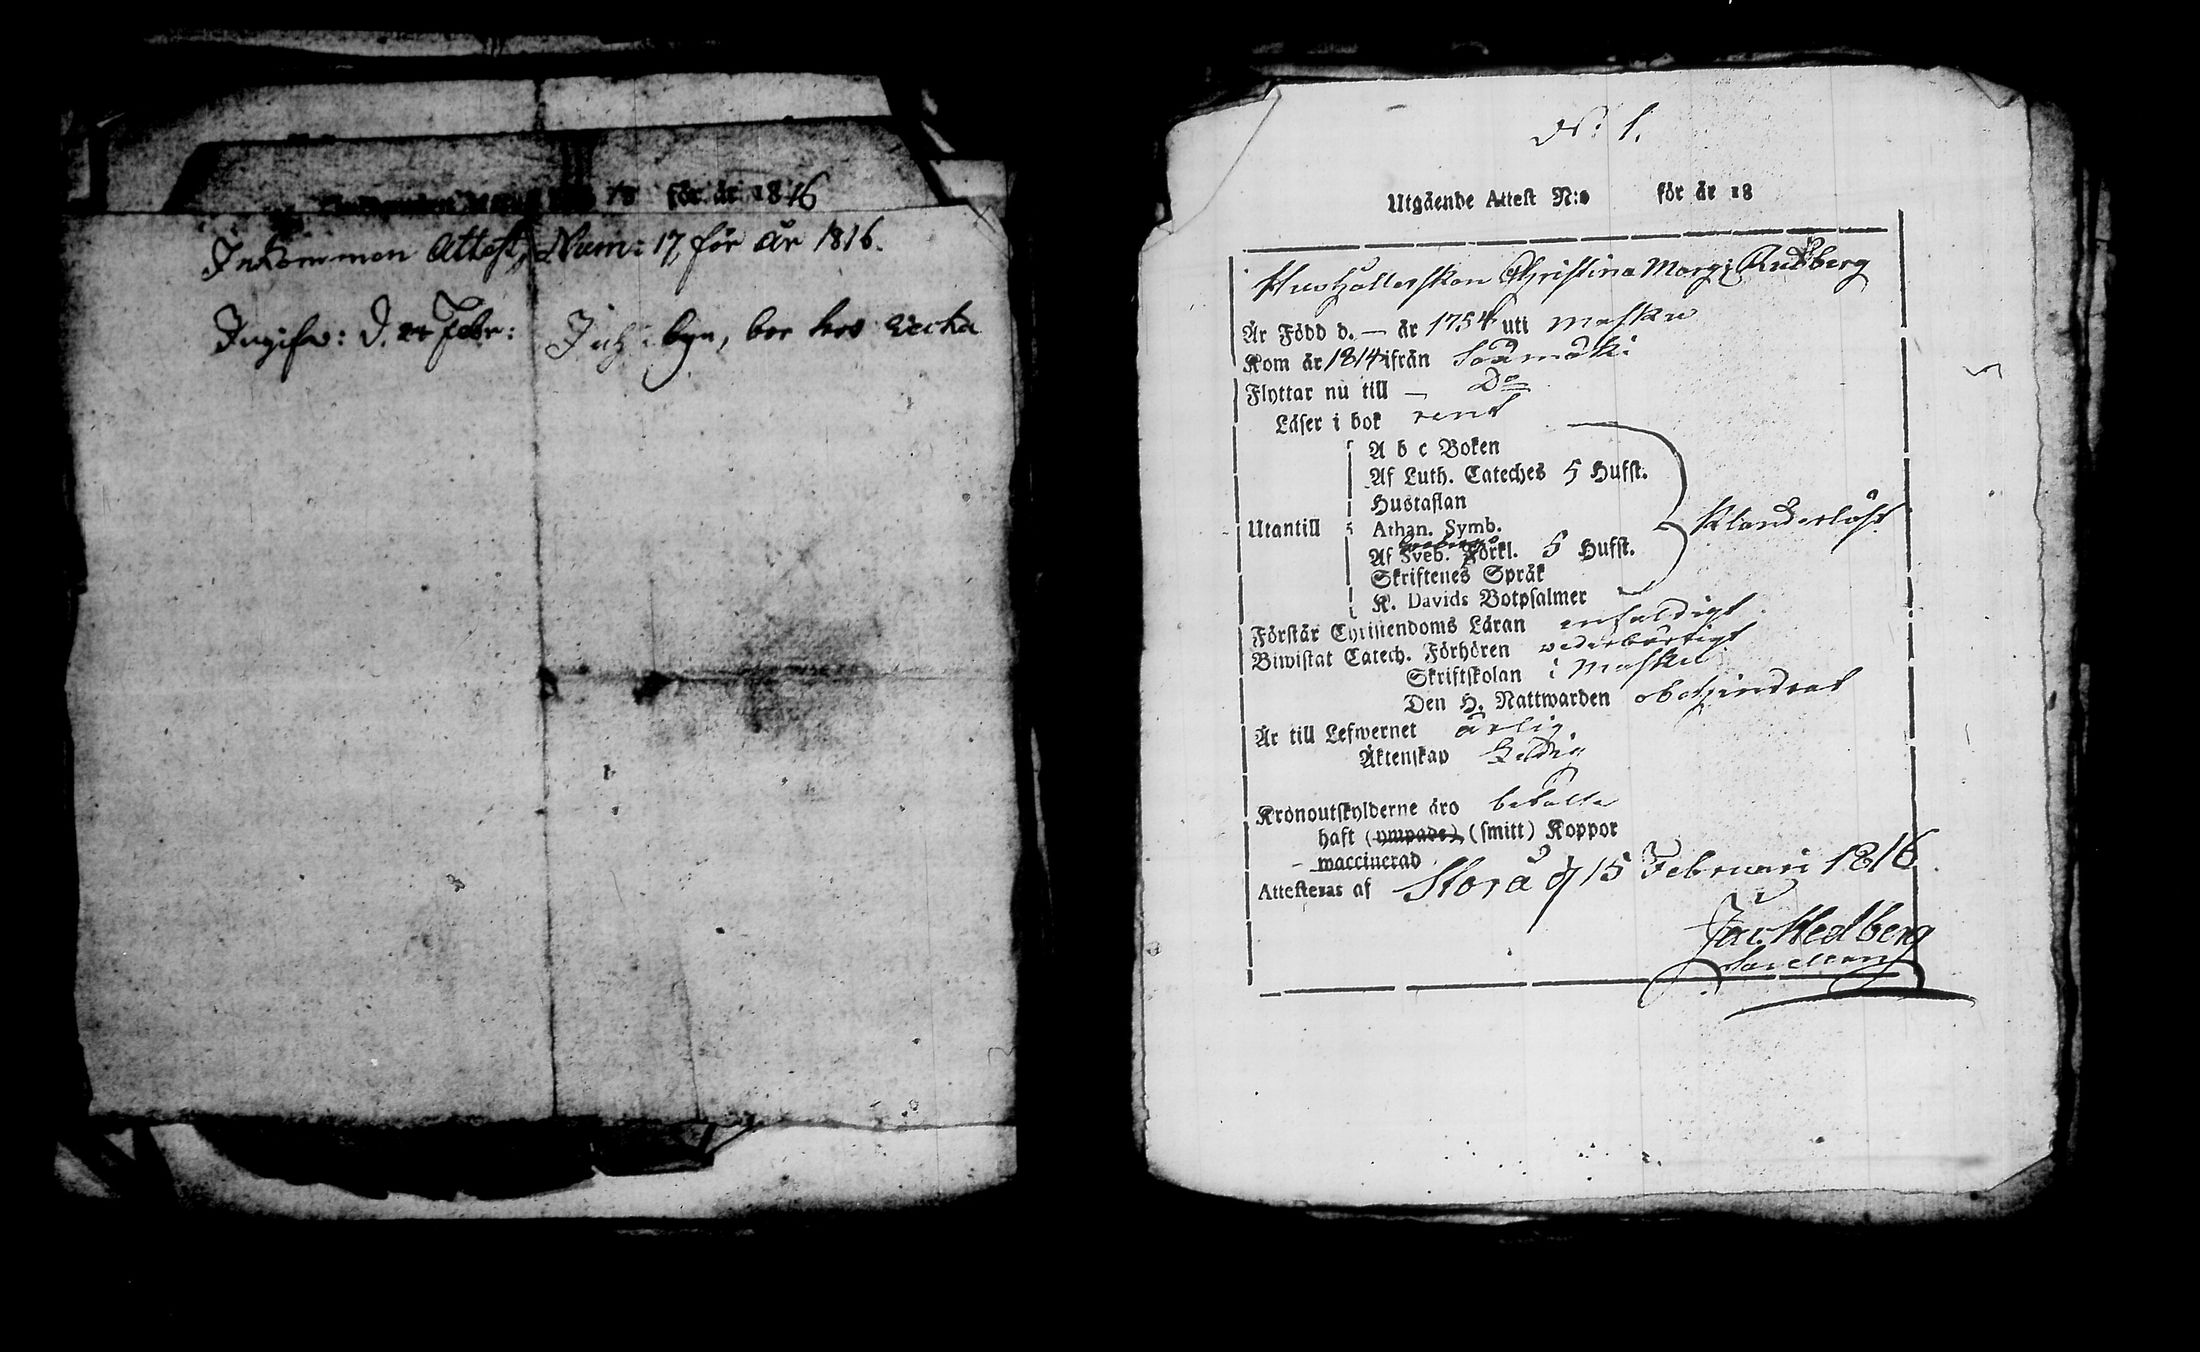 för år 1816
Inkommen Attest, Num: 17, för år 1816.
Ingifw: d. 24 Febr: byn, bor hos
N: 1.
Utgående Attest N:o för år 18
Hushållerskan Christina Marg: Rudberg
Är Född d. — år 1754 uti Masku
Kom år 1814 ifrån Sodmark:
Flyttar nu till — Do
Läser i bok rent
A b c Boken
Af Luth. Cateches 5 Hufst.
Hustaflan
Utantill Athan. Symb. Klanderlöst
Af Sveb. Förkl. 5 Hufst.
Skriftenes Språk
K. Davids Botpsalmer
Förstår Christendoms Läran enfaldigt
Biwistat Catech. Förhören wederbörligt
Skriftskolan i Masku
Den H. Nattwarden obehindrat
Är till Lefwernet ärlig
Äktenskap ledig
Kronoutskylderne äro betalte
haft (ympade) (smitt) Koppor
waccinerad
Attesteras af Storå d 15 Februari 1816
Jac. Hedberg
Sacellan